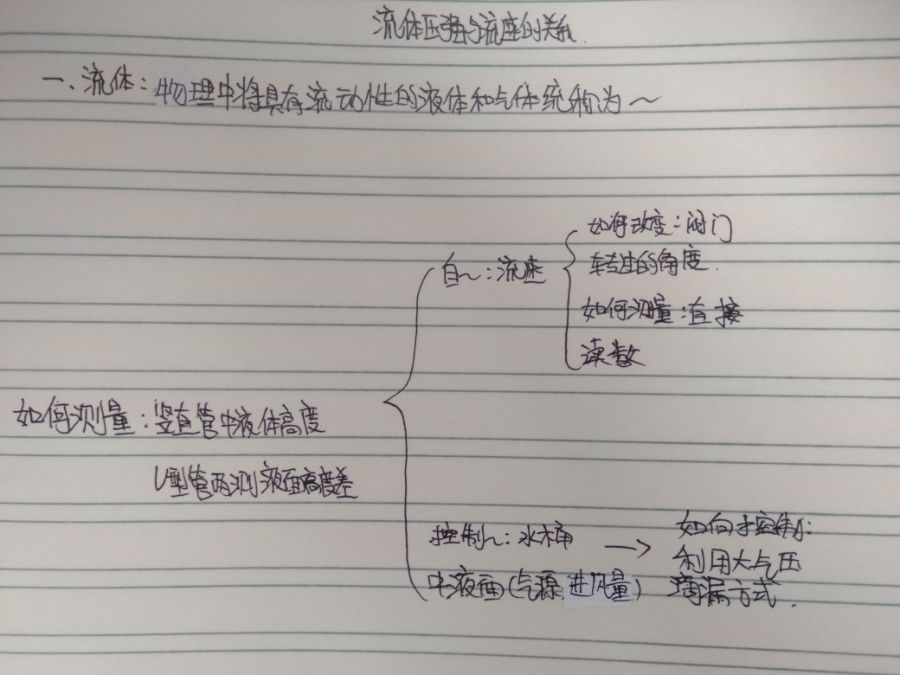 流体压强与流速的关系
一、流体：物理中将具有流动性的液体和气体统称为～
自～：流速
如何改变：阀门
转过的角度.
如何测量：直接
读数
如何测量：竖直管中液体高度
U型管两测液面高度差
控制～：水桶
中液面(气源进风量)
→
如何控制：
利用大气压
滴漏方式.